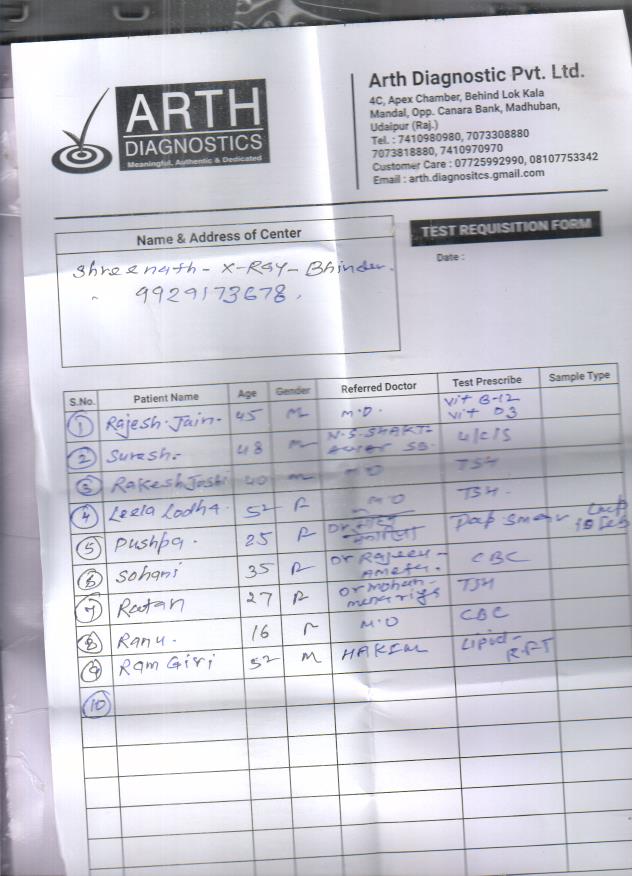 ARTH
DIAGNOSTICS
Meaningful, Authentic & Dedicated
Arth Diagnostic Pvt. Ltd.
4C, Apex Chamber, Behind Lok Kala
Mandal, Opp. Canara Bank, Madhuban,
Udaipur (Raj.)
Tel. : 7410980980, 7073308880
7073818880, 7410970970
Customer Care : 07725992990, 08107753342
Email : arth.diagnositcs.gmail.com
Name & Address of Center
TEST REQUISITION FORM
Shreenath - X-Ray - Bhinder.
9929173678.
Date :
S.No. Patient Name Age Gender Referred Doctor Test Prescribe Sample Type
1 Rajesh. Jain. 45 M M.D. Vit B-12
Vit D3
2 Suresh. 48 M N.S. SHAKTI 4/c/s
3 Rakesh Joshi 40 M M D TSH
4 Leela Lodha. 52 F M.D TSH.
5 Pushpa. 25 F Dr Pap Smear
6 Sohani 35 F Dr Rajeev - CBC
Ameta.
7 Ratan 27 F Dr Mohan - TSH
menariya
8 Ranu. 16 F M.D CBC
9 Ram Giri 52 M HAKIM Lipid -
RFT
10